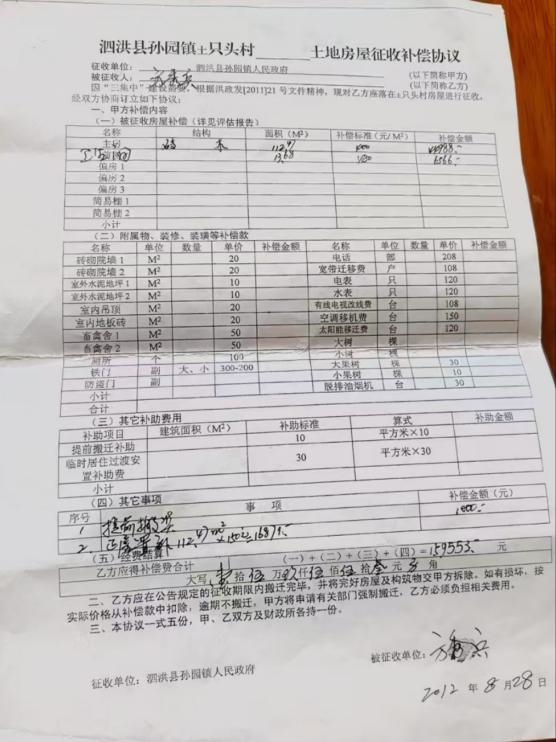 泗洪县孙园镇土只头村 土地房屋征收补偿协议
征收单位： 泗洪县孙园镇人民政府 （以下简称甲方）
被征收人： （以下简称乙方）
因“三集中”建设需要，根据洪政发[2011]21 号文件精神，现对乙方座落在土只头村房屋进行征收，
经双方协商订立如下协议：
一、甲方补偿内容
（一）被征收房屋补偿（详见评估报告）
名称 结构 面积（M²） 补偿标准(元/ M²) 补偿金额
主房 砖 木 112.47
13.68 6566.-
偏房 1
偏房 2
偏房 3
简易棚 1
简易棚 2
小计
（二）附属物、装修、装璜等补偿款
名称 单位 数量 单价 补偿金额 名称 单位 数量 单价 补偿金额
砖砌院墙 1 M² 20 电话 部 208
砖砌院墙 2 M² 20 宽带迁移费 户 108
室外水泥地坪 1 M² 10 电表 只 120
室外水泥地坪 2 M² 10 水表 只 120
室内吊顶 M² 20 有线电视改线费 台 108
室内地板砖 M² 20 空调移机费 台 150
畜禽舍 1 M² 50 太阳能移迁费 台 120
畜禽舍 2 M² 50 大树 棵
厕所 个 100 小树 棵
铁门 副 大、小 300-200 大果树 棵 30
防盗门 副 小果树 棵 10
小计 脱排油烟机 台 30
合计
（三）其它补助费用
补助项目 建筑面积（M²） 补助标准 算式 补助金额
提前搬迁补助 10 平方米×10
临时居住过渡安 30 平方米×30
置补助费
小计
（四）其它事项
序号 事 项 补偿金额（元）
1 提前搬奖
2. 112.47m²×150=16871.-
（五）经费结算
乙方应得补偿费合计 （一）+（二）+（三）+（四）=159553.- 元
大写： 壹拾伍万玖仟伍佰伍拾叁元 角
二、乙方应在公告规定的征收期限内搬迁完毕，并将完好房屋及构筑物交甲方拆除。如有损坏，按
实际价格从补偿款中扣除，逾期不搬迁，甲方将申请有关部门强制搬迁，乙方必须负担相关费用。
三、本协议一式五份，甲、乙双方及财政所各持一份。
被征收单位：
征收单位：泗洪县孙园镇人民政府
2012 年 8 月 28 日